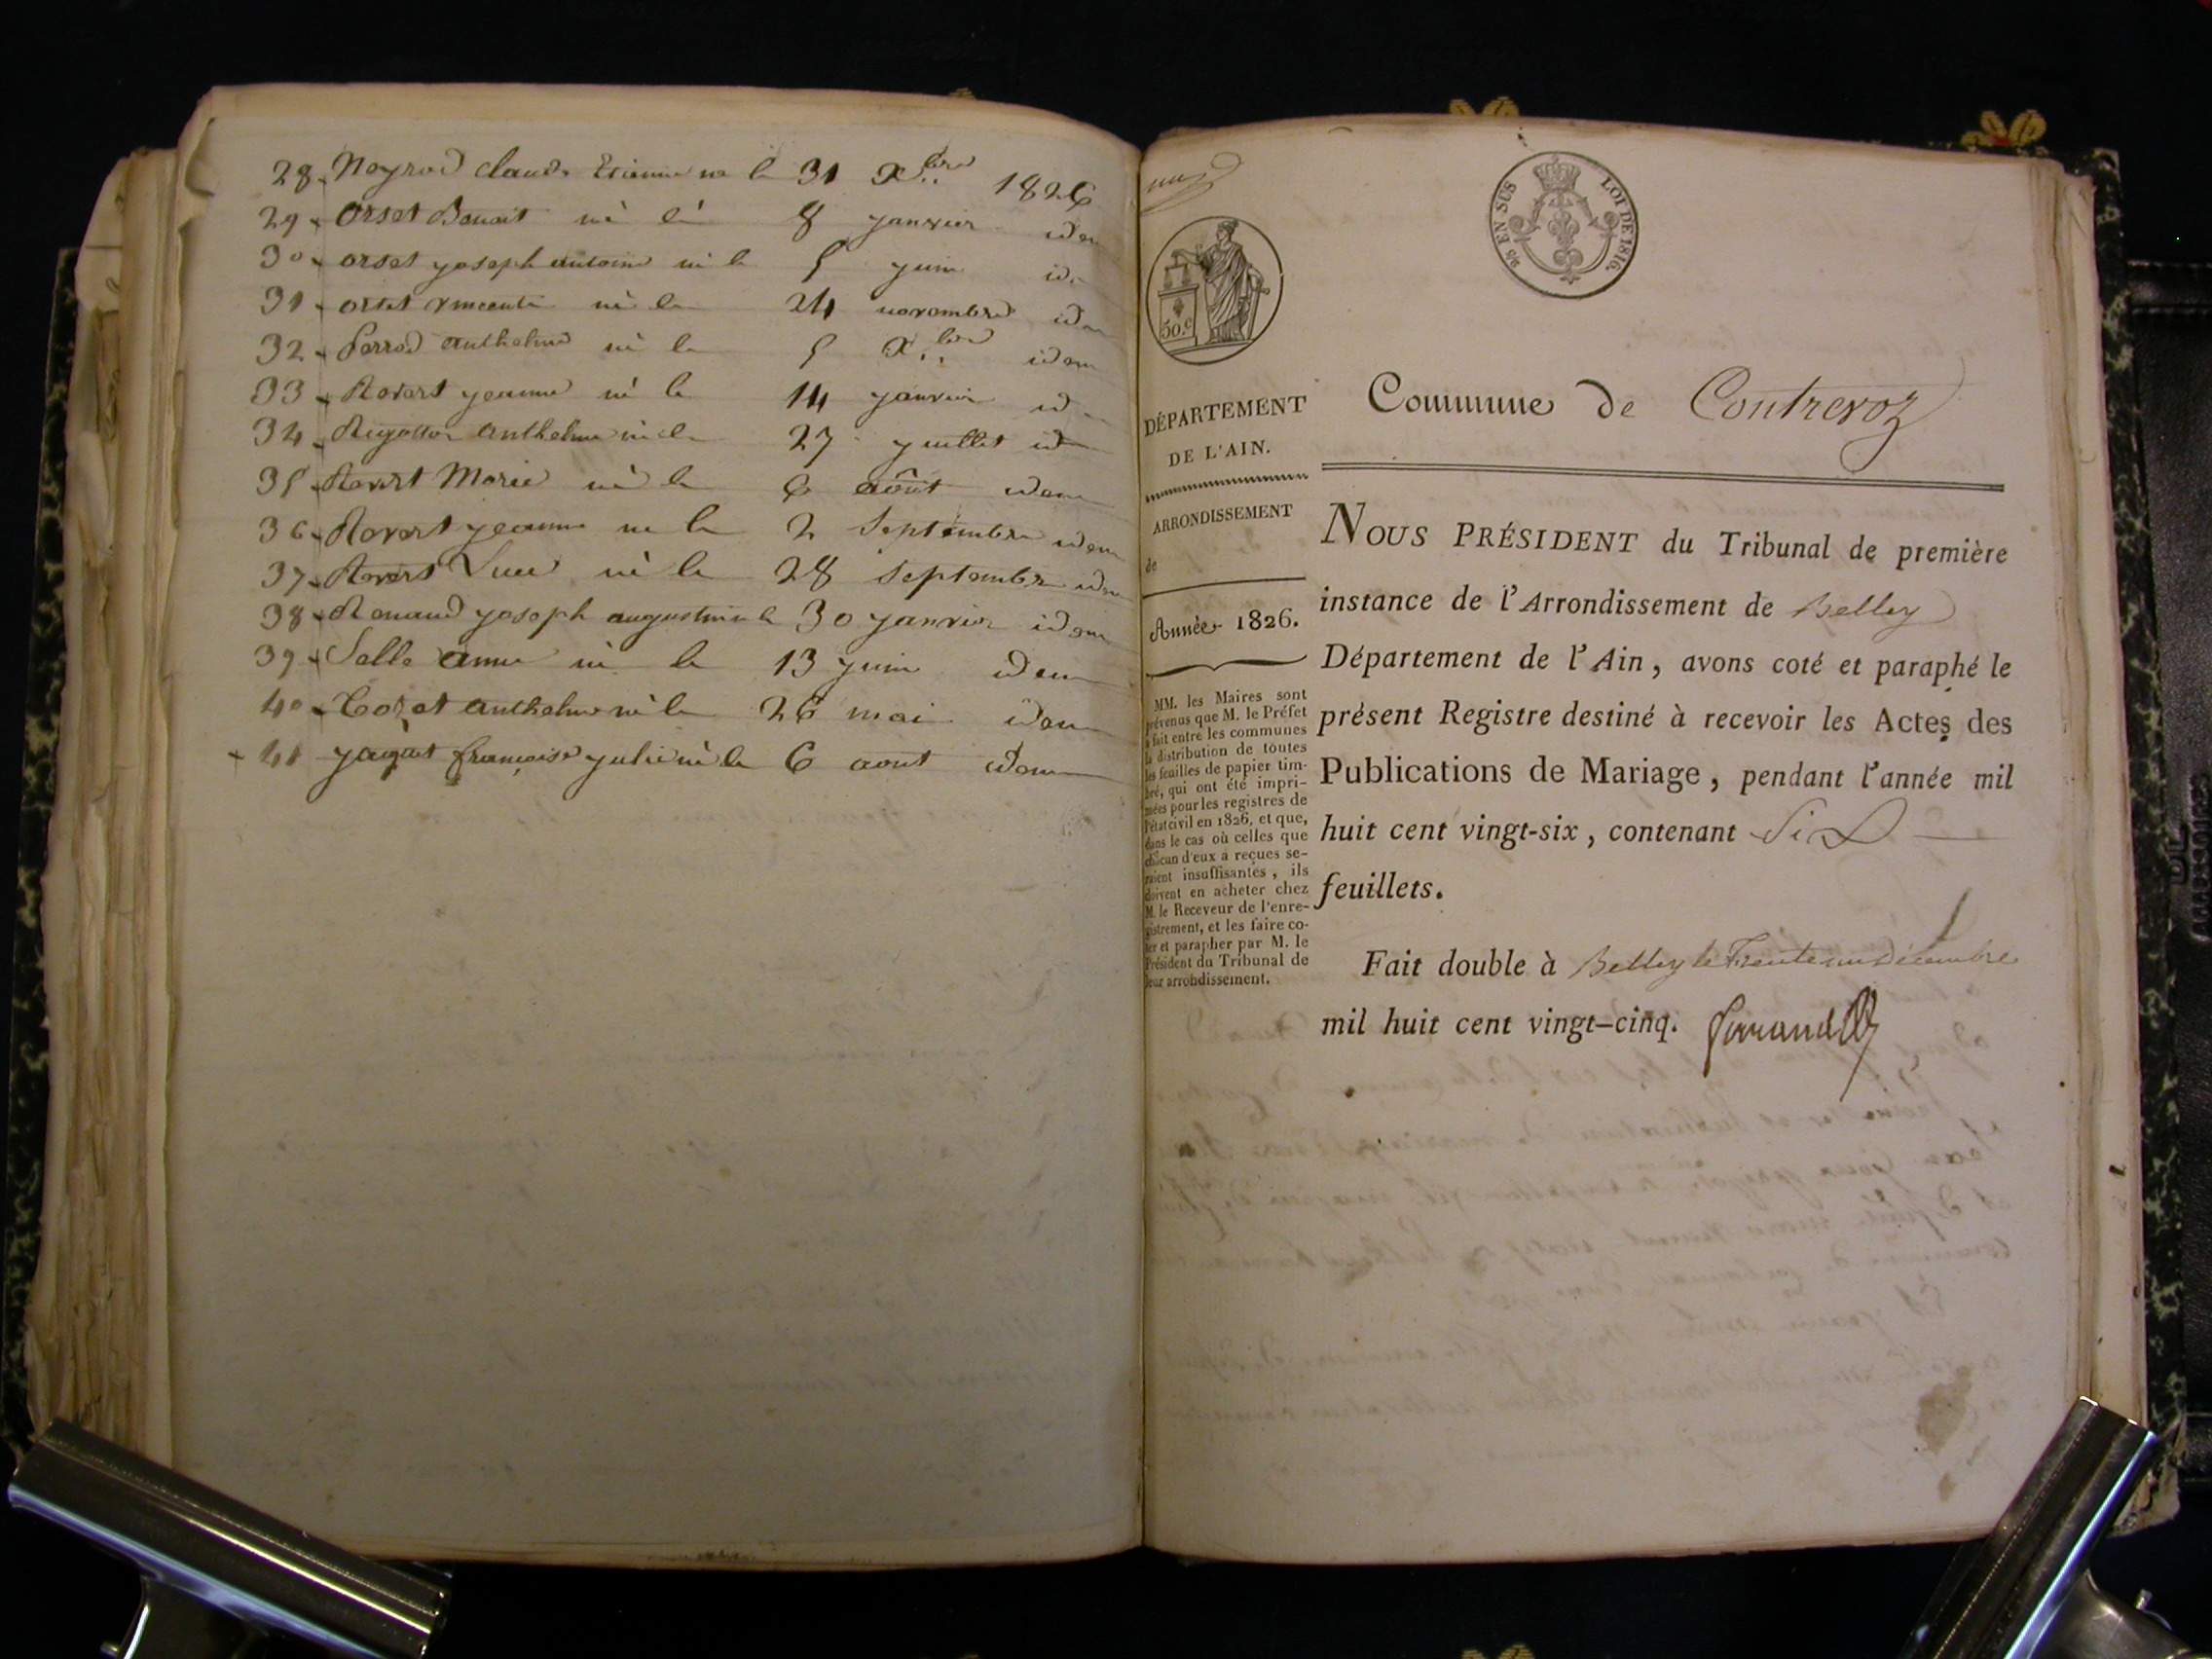 28 Neyrod Claude Etienne né le 31 Xbre 1826
29 Orset Benoit né lé 8 janvier idem
30 orset joseph antoine né le 5 juin id.
31 ortet vincente né le 24 novembre idem
32 Perrod anthelme né le 5 Xbre idem
33 Revert jeanne né le 14 janvier id.
34 anthelme né le 27 juillet id
35 Revert Marie né le 6 août idem
36 Revert jeanne né le 2 Septembre idem
37 Revert Luce né le 28 Septembre idem
38 Renaud joseph augustin né le 30 janvier idem
39 Selle anne né le 13 juin idem
40 anthelme né le 26 mai idem
+ 41 jaquet françoise julie né le 6 aout idem
25 EN SUS LOI DE 1816.
50.c
DÉPARTEMENT
DE L'AIN.
ARRONDISSEMENT
de
Année 1826.
MM. les Maires sont
prévenus que M. le Préfet
a fait entre les communes
la distribution de toutes
les feuilles de papier tim-
bré, qui ont été impri-
mées pour les registres de
l'état civil en 1826, et que,
dans le cas où celles que
chacun d'eux a reçues se-
raient insuffisantes, ils
doivent en acheter chez
M. le Receveur de l'enre-
gistrement, et les faire co-
ter et parapher par M. le
Président du Tribunal de
leur arrondissement.
Commune de Contrevoz
NOUS PRÉSIDENT du Tribunal de première
instance de l'Arrondissement de Belley
Département de l'Ain, avons coté et paraphé le
présent Registre destiné à recevoir les Actes des
Publications de Mariage, pendant l'année mil
huit cent vingt-six, contenant Six
feuillets.
Fait double à Belley le Trente un décembre
mil huit cent vingt-cinq.